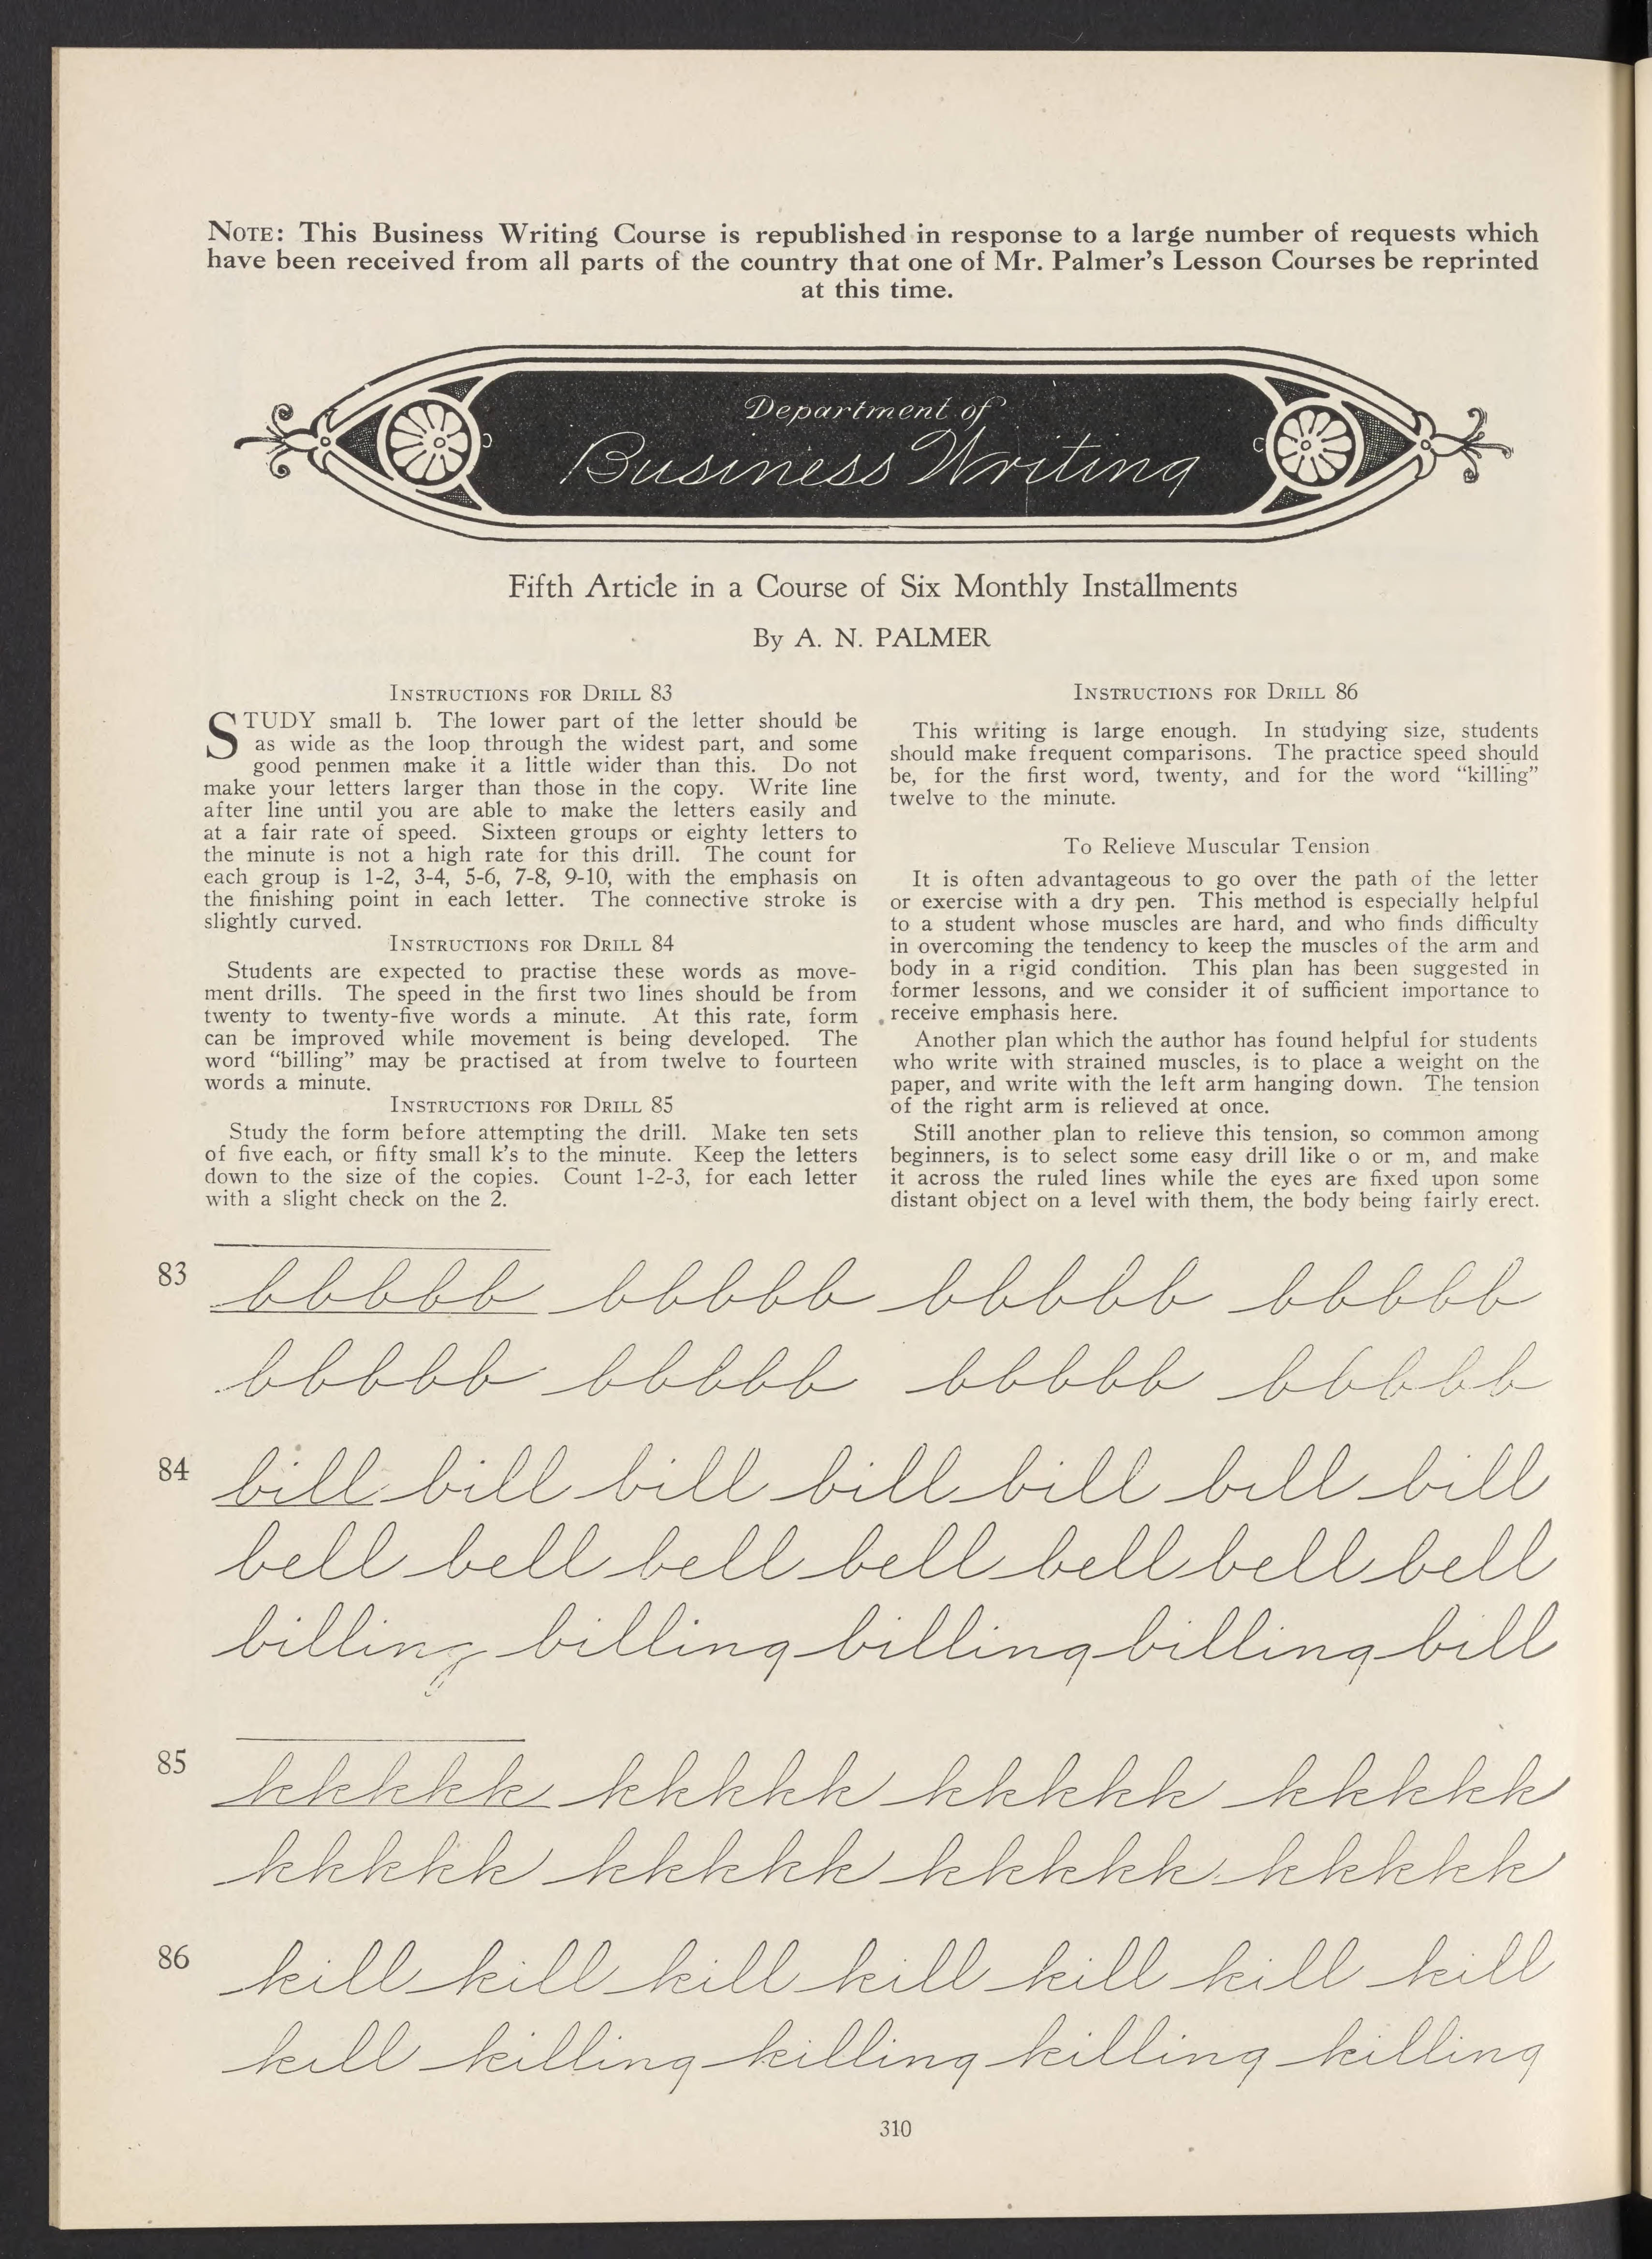 NOTE: This Business Writing Course is republished in response to a large number of requests which
have been received from all parts of the country that one of Mr. Palmer's Lesson Courses be reprinted
at this time.
Department of
Business Writing
Fifth Article in a Course of Six Monthly Installments
By A. N. PALMER
INSTRUCTIONS FOR DRILL 83
STUDY small b. The lower part of the letter should be
as wide as the loop through the widest part, and some
good penmen make it a little wider than this. Do not
make your letters larger than those in the copy. Write line
after line until you are able to make the letters easily and
at a fair rate of speed. Sixteen groups or eighty letters to
the minute is not a high rate for this drill. The count for
each group is 1-2, 3-4, 5-6, 7-8, 9-10, with the emphasis on
the finishing point in each letter. The connective stroke is
slightly curved.
INSTRUCTIONS FOR DRILL 84
Students are expected to practise these words as move-
ment drills. The speed in the first two lines should be from
twenty to twenty-five words a minute. At this rate, form
can be improved while movement is being developed. The
word "billing" may be practised at from twelve to fourteen
words a minute.
INSTRUCTIONS FOR DRILL 85
Study the form before attempting the drill. Make ten sets
of five each, or fifty small k's to the minute. Keep the letters
down to the size of the copies. Count 1-2-3, for each letter
with a slight check on the 2.
INSTRUCTIONS FOR DRILL 86
This writing is large enough. In studying size, students
should make frequent comparisons. The practice speed should
be, for the first word, twenty, and for the word "killing"
twelve to the minute.
To Relieve Muscular Tension
It is often advantageous to go over the path of the letter
or exercise with a dry pen. This method is especially helpful
to a student whose muscles are hard, and who finds difficulty
in overcoming the tendency to keep the muscles of the arm and
body in a rigid condition. This plan has been suggested in
former lessons, and we consider it of sufficient importance to
receive emphasis here.
Another plan which the author has found helpful for students
who write with strained muscles, is to place a weight on the
paper, and write with the left arm hanging down. The tension
of the right arm is relieved at once.
Still another plan to relieve this tension, so common among
beginners, is to select some easy drill like o or m, and make
it across the ruled lines while the eyes are fixed upon some
distant object on a level with them, the body being fairly erect.
83 bbbbb bbbbb bbbbb bbbbb
bbbbb bbbbb bbbbb bbbbb
84 bill bill bill bill bill bill bill
bell bell bell bell bell bell bell
billing billing billing billing bill
85 kkkkk kkkkk kkkkk kkkkk
kkkkk kkkkk kkkkk kkkkk
86 kill kill kill kill kill kill kill
kill killing killing killing killing
310